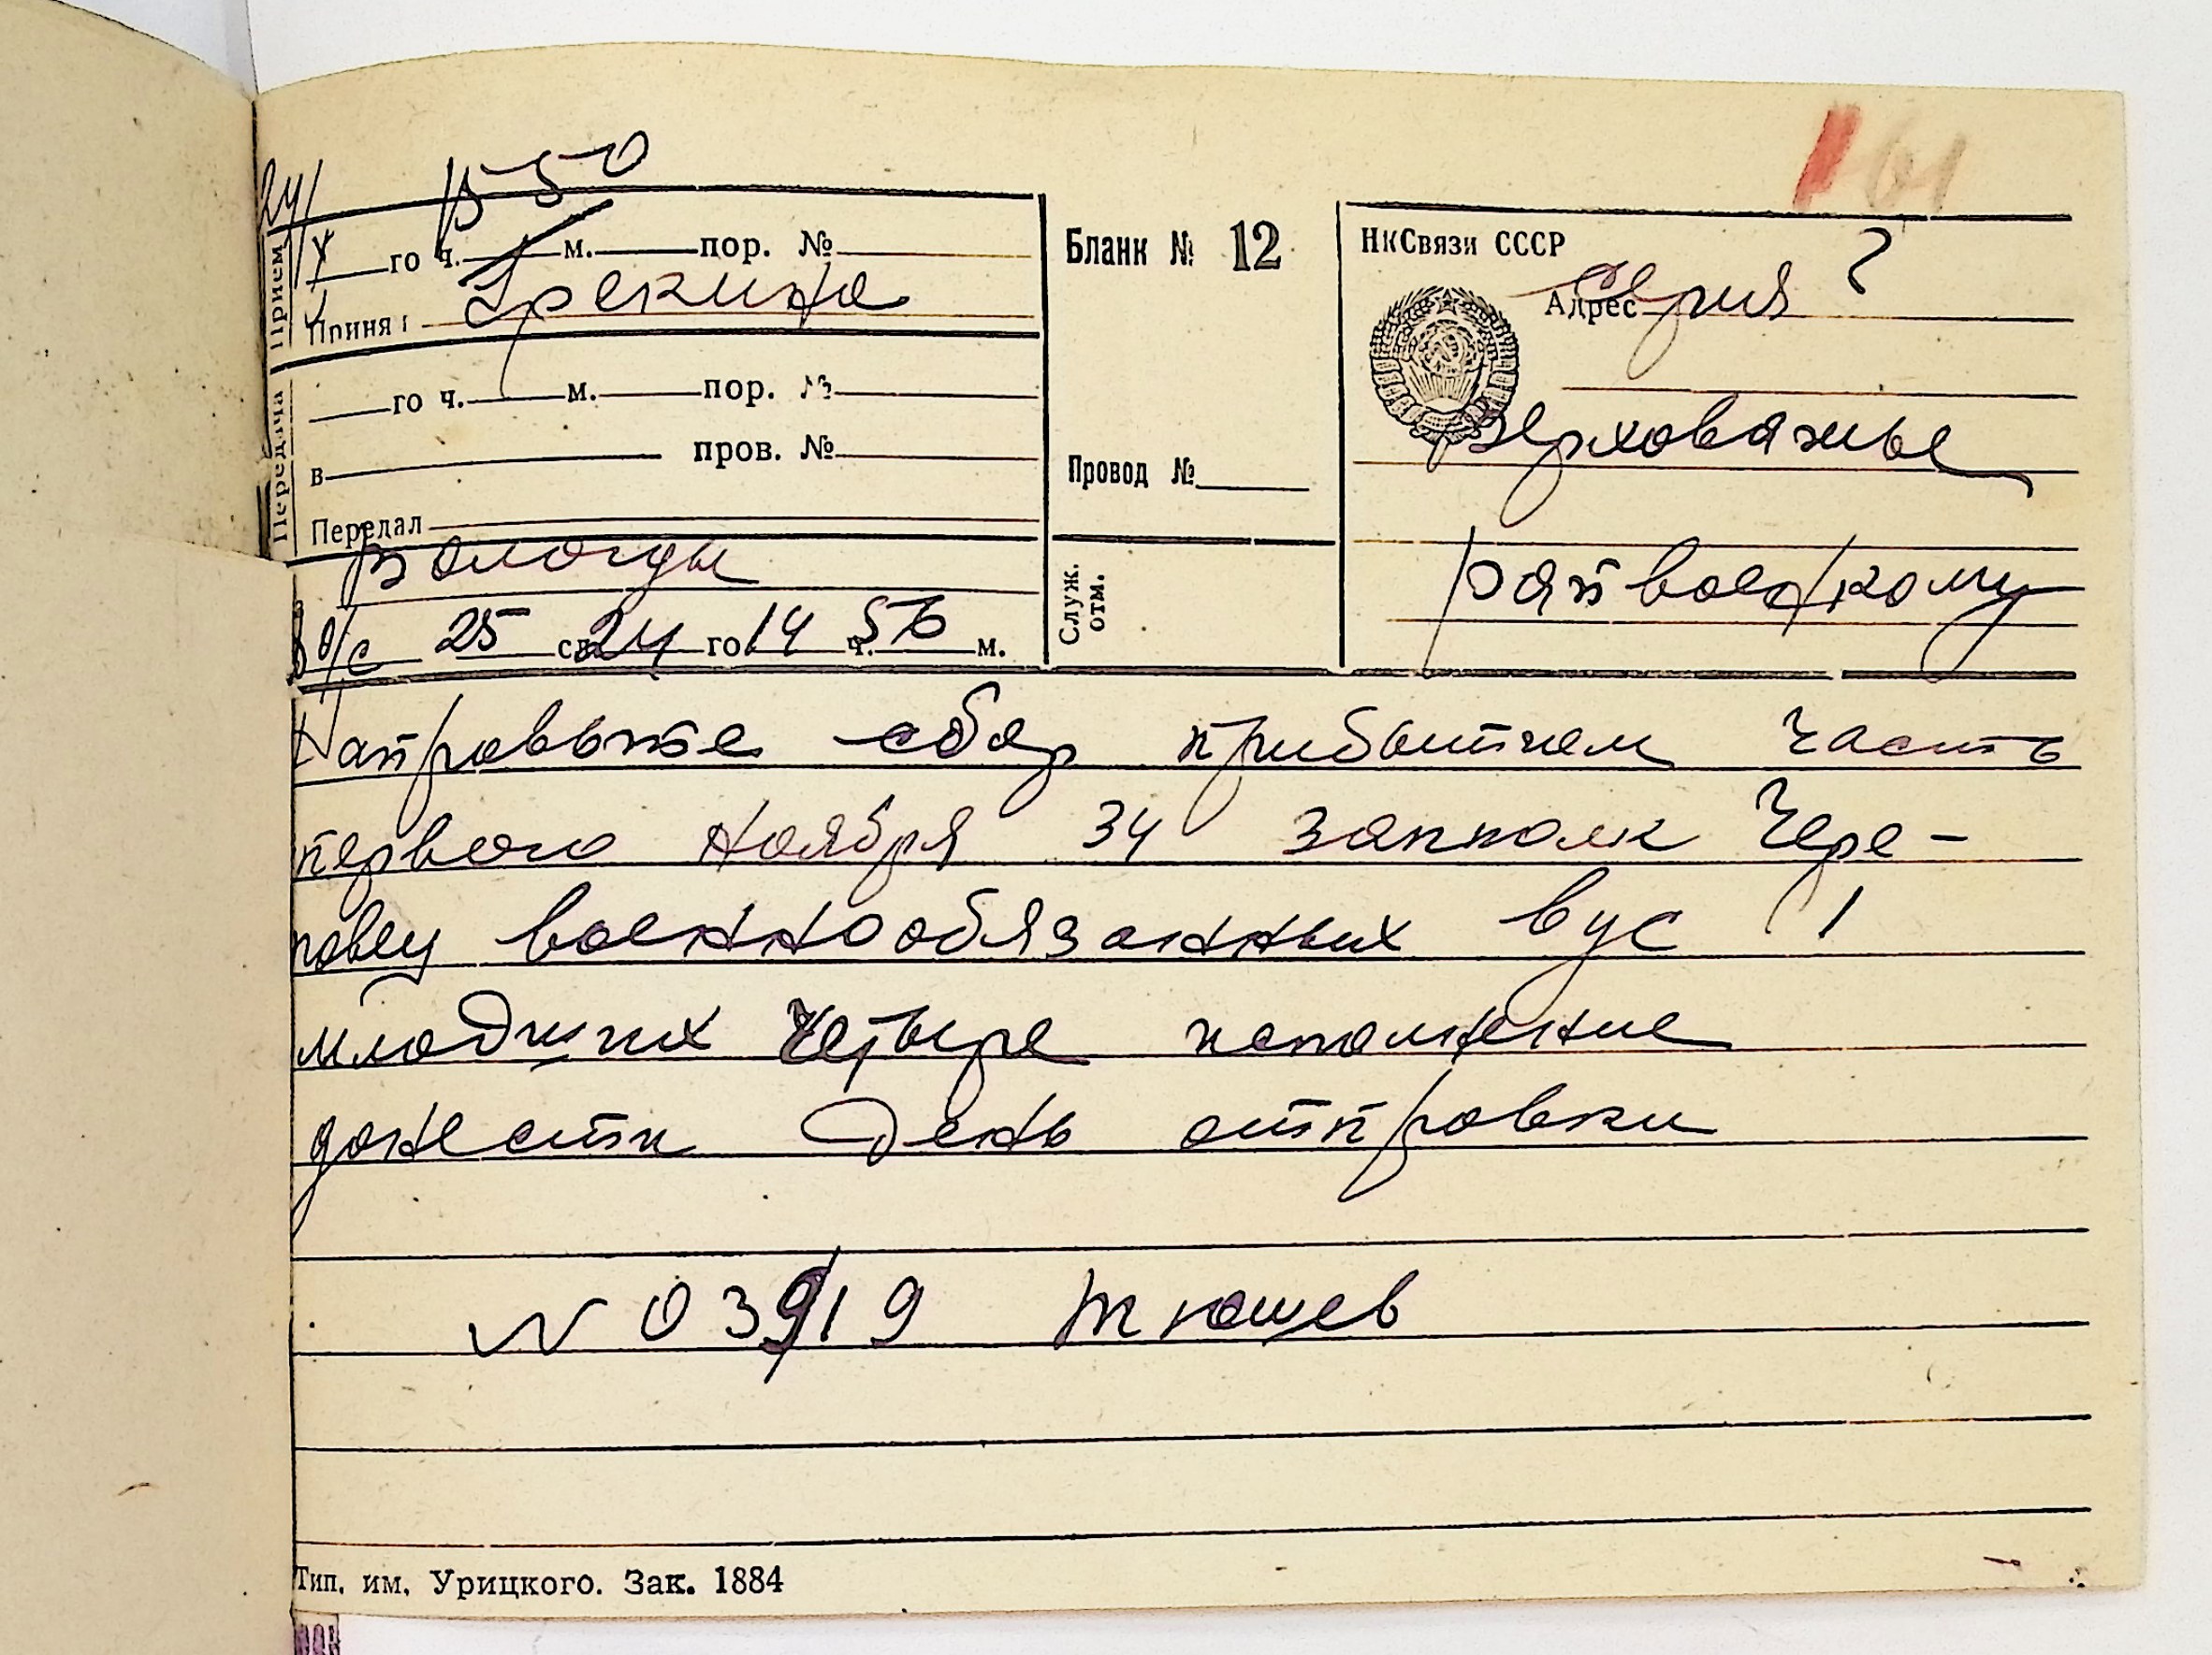 24/X 15 50
61
Прием
го ч. м. пор. №
Принял
Бланк № 12
НКСвязи СССР
Адрес Серия Г
Передача
го ч. м. пор. №
в пров. №
Передал
Провод №
Верховажье
райвоенкому
Вологды
25 сл 24 го 14 ч. 56 м.
Служ. отм.
Направьте сбор прибытием часть
первого ноября 34 запполк Чере-
повец военнообязанных вус 1
младших четыре исполнение
донести день отправки
N 03919 Тюшев
Тип. им. Урицкого. Зак. 1884